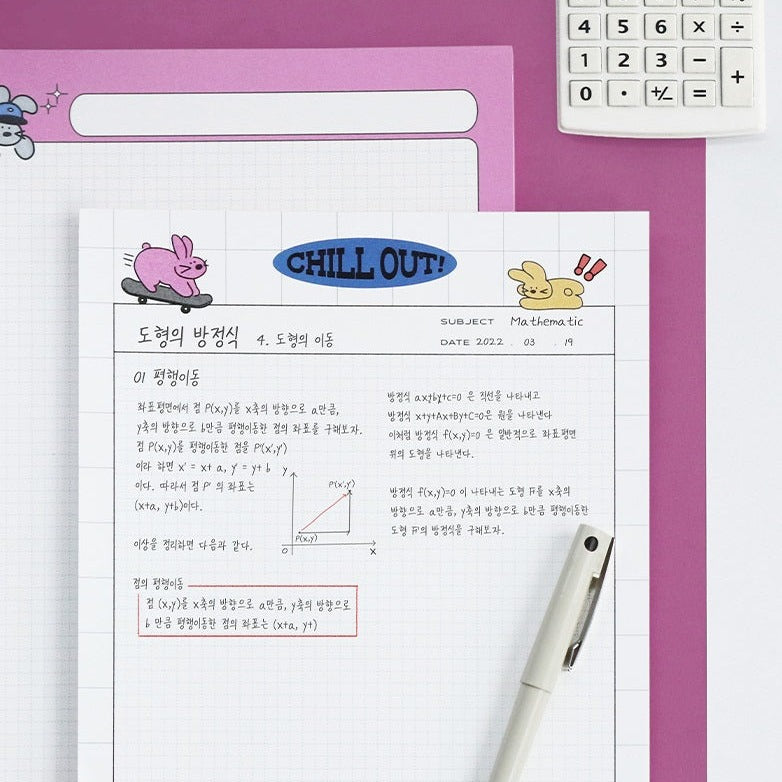 4 5 6 × ÷
1 2 3 −
0 · +/− = +
CHILL OUT!
도형의 방정식 4. 도형의 이동
SUBJECT Mathematic
DATE 2022 . 03 . 19
01 평행이동
좌표평면에서 점 P(x,y)를 x축의 방향으로 a만큼,
y축의 방향으로 b만큼 평행이동한 점의 좌표를 구해보자.
점 P(x,y)를 평행이동한 점을 P'(x',y')
이라 하면 x' = x+ a, y' = y+ b
이다. 따라서 점 P' 의 좌표는
(x+a, y+b)이다.
이상을 정리하면 다음과 같다.
y
P(x',y')
P(x,y)
O
x
점의 평행이동
점 (x,y)를 x축의 방향으로 a만큼, y축의 방향으로
b 만큼 평행이동한 점의 좌표는 (x+a, y+)
방정식 ax+by+c=0 은 직선을 나타내고
방정식 x+y+Ax+By+C=0은 원을 나타낸다
이처럼 방정식 f(x,y)=0 은 일반적으로 좌표평면
위의 도형을 나타낸다.
방정식 f(x,y)=0 이 나타내는 도형 F를 x축의
방향으로 a만큼, y축의 방향으로 b만큼 평행이동한
도형 F'의 방정식을 구해보자.